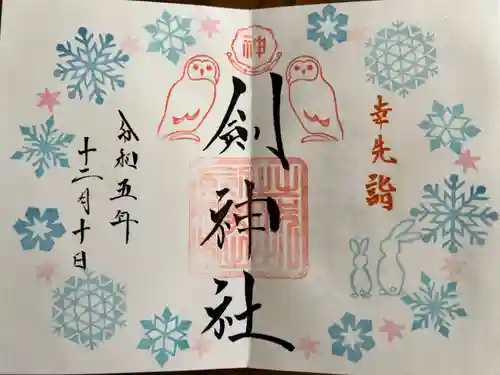 幸先詣
神
劔神社
令和五年
十二月十日